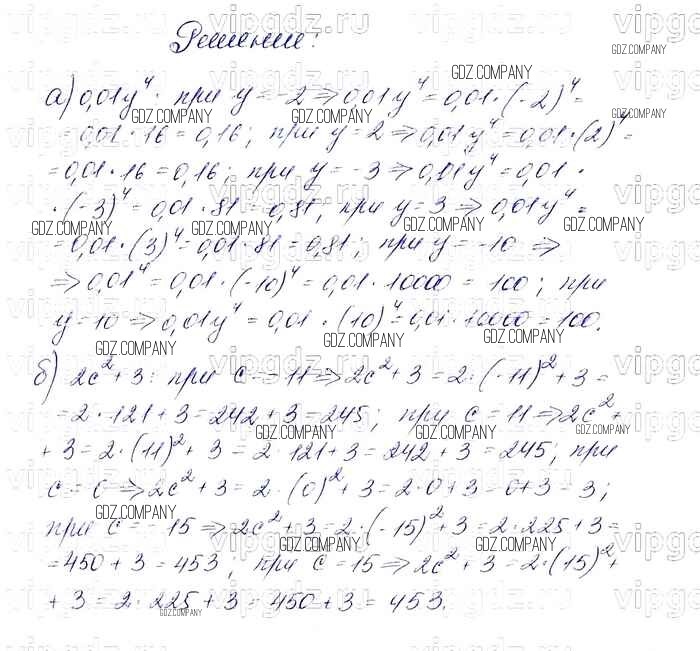 Решение:
а) 0,01y⁴ при y = -2 ⇒ 0,01y⁴ = 0,01·(-2)⁴ =
= 0,01·16 = 0,16; при y = 2 ⇒ 0,01y⁴ = 0,01·(2)⁴ =
= 0,01·16 = 0,16; при y = -3 ⇒ 0,01y⁴ = 0,01·
·(-3)⁴ = 0,01·81 = 0,81; при y = 3 ⇒ 0,01y⁴ =
= 0,01·(3)⁴ = 0,01·81 = 0,81; при y = -10 ⇒
⇒ 0,01⁴ = 0,01·(-10)⁴ = 0,01·10000 = 100; при
y = 10 ⇒ 0,01y⁴ = 0,01·(10)⁴ = 0,01·10000 = 100.
б) 2c² + 3: при c = -11 ⇒ 2c² + 3 = 2·(-11)² + 3 =
= 2·121 + 3 = 242 + 3 = 245; при c = 11 ⇒ 2c² +
+ 3 = 2·(11)² + 3 = 2·121 + 3 = 242 + 3 = 245; при
c = 0 ⇒ 2c² + 3 = 2·(0)² + 3 = 2·0 + 3 = 0 + 3 = 3;
при c = -15 ⇒ 2c² + 3 = 2·(-15)² + 3 = 2·225 + 3 =
= 450 + 3 = 453; при c = 15 ⇒ 2c² + 3 = 2·(15)² +
+ 3 = 2·225 + 3 = 450 + 3 = 453.
vipgdz.ru
GDZ.COMPANY